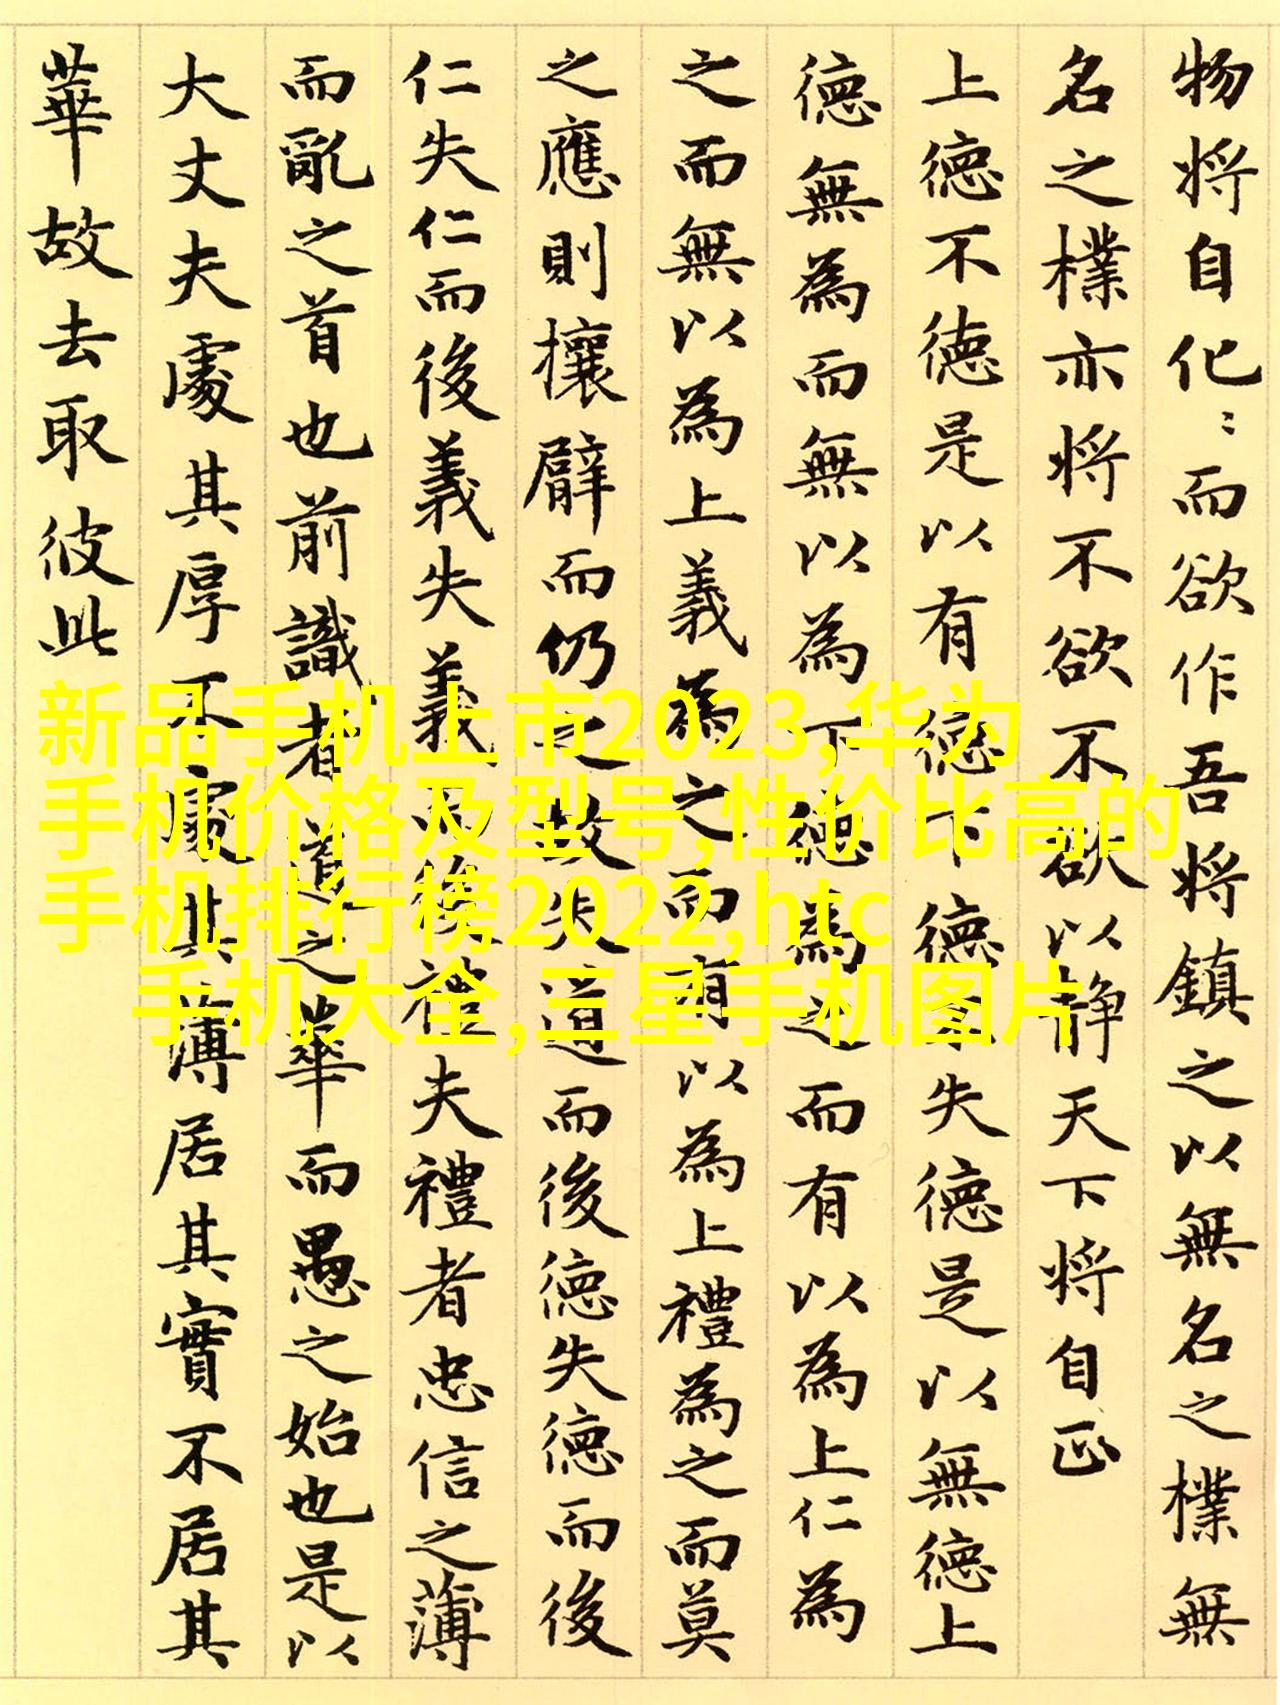 物将自化〻而欲作吾将鎮之以無名之樸無
名之樸亦将不欲不欲以静天下将自正
上德不德是以有德下德不失德是以無德上
德無為而無以為下德為之而有以為上仁為
之而無以為上義為之而有以為上禮為之而莫
之應則攘臂而仍之故失道而後德失德而後
仁失仁而後義失義而後禮夫禮者忠信之薄
而亂之首也前識者道之華而愚之始也是以
大丈夫處其厚不處其薄居其實不居其
華故去取彼此
新品手机上市2023,华为
手机价格及型号,性价比高的
手机排行榜2022,htc
手机大全,三星手机图片